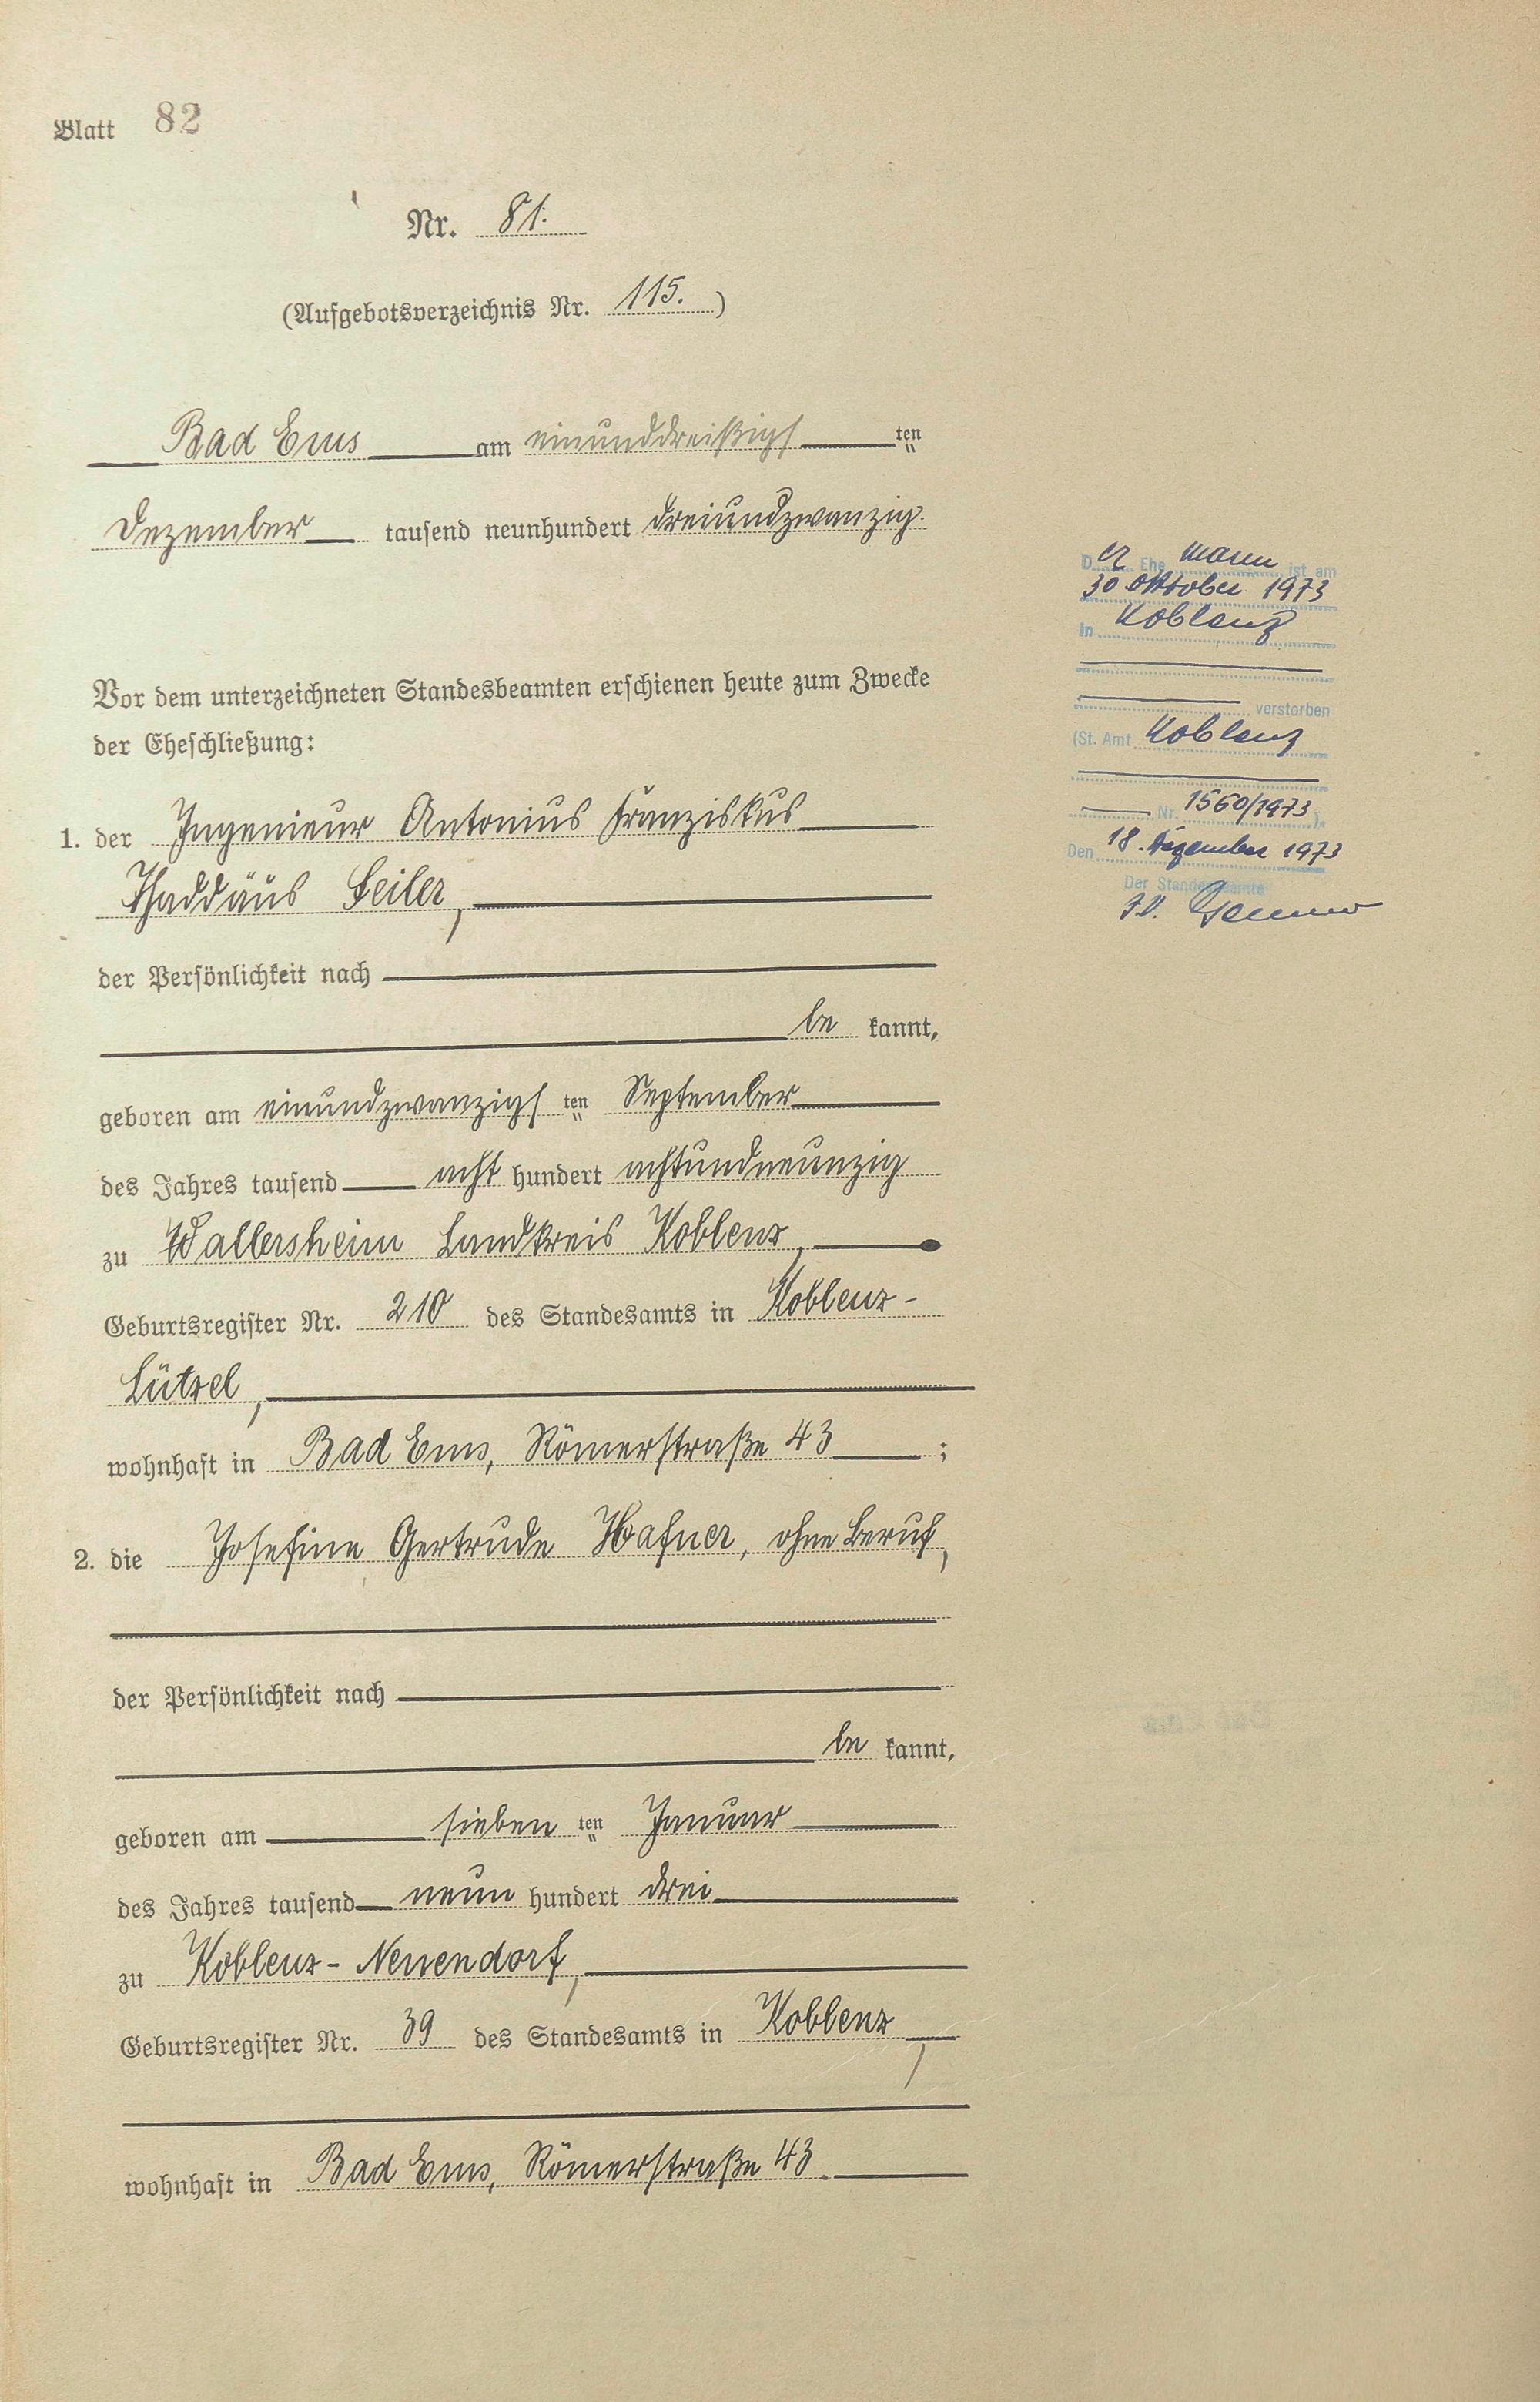 Blatt 82
Nr. 81.
(Aufgebotsverzeichnis Nr. 115.)
Bad Ems am einunddreißigsten
Dezember tausend neunhundert dreiundzwanzig.
Vor dem unterzeichneten Standesbeamten erschienen heute zum Zwecke
der Eheschließung:
1. der Ingenieur Antonius Franziskus
Thaddäus Seiler,
der Persönlichkeit nach
be kannt,
geboren am einundzwanzigsten September
des Jahres tausend acht hundert achtundneunzig
zu Wallersheim Landkreis Koblenz,
Geburtsregister Nr. 210 des Standesamts in Koblenz-
Lützel,
wohnhaft in Bad Ems, Römerstraße 43 ;
2. die Josefine Gertrude Hafner, ohne Beruf,
der Persönlichkeit nach
be kannt,
geboren am sieben ten Januar
des Jahres tausend neun hundert drei
zu Koblenz-Neuendorf,
Geburtsregister Nr. 39 des Standesamts in Koblenz,
wohnhaft in Bad Ems, Römerstraße 43.
Der Ehe mann ist am
30. Oktober 1973
in Koblenz
verstorben
(St. Amt Koblenz
Nr. 1560/1973).
Den 18. Dezember 1973
Der Standesbeamte
I.V.